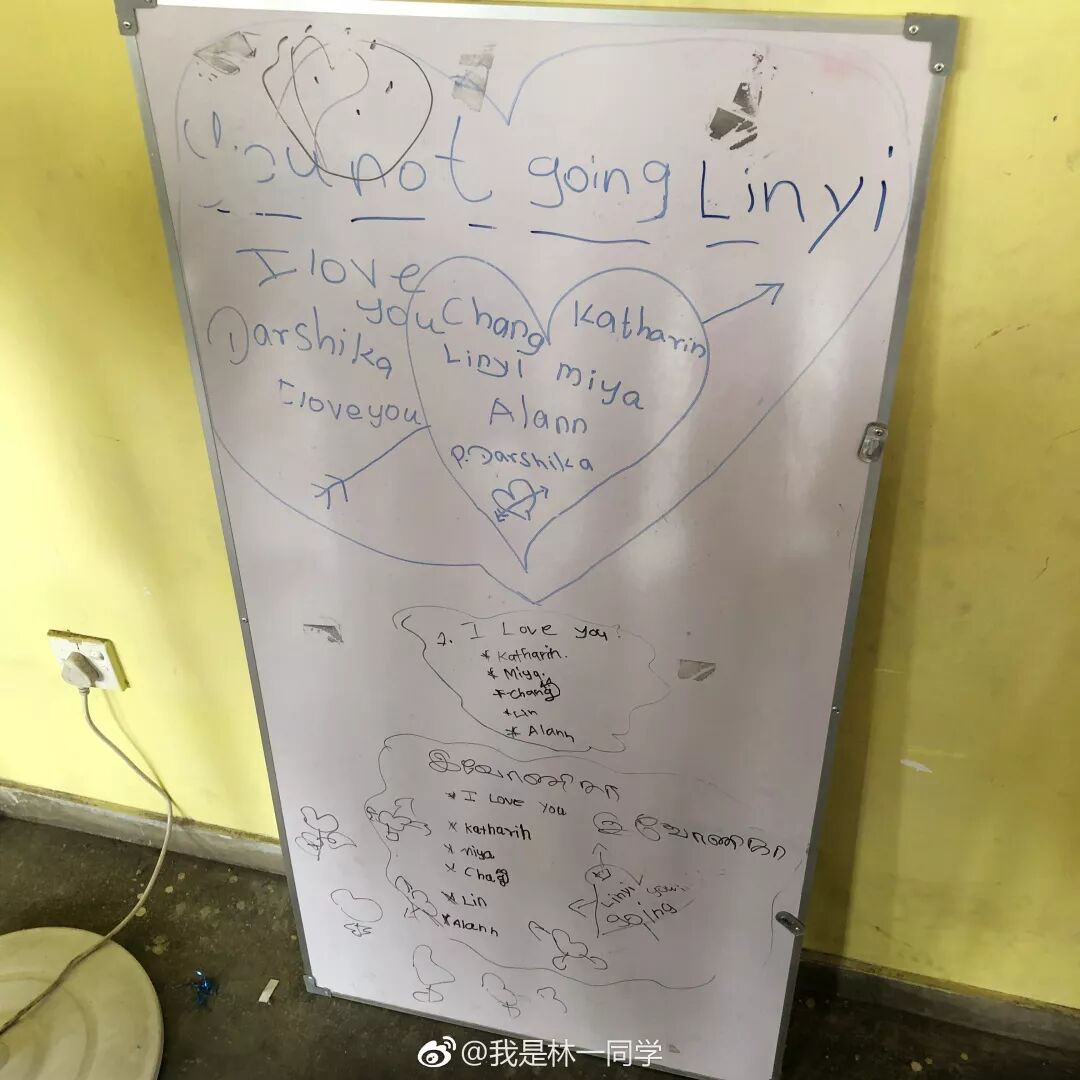 You not going Linyi
I love
you
Darshika
I love you
Chang
Katharin
Linyi miya
Alann
P. Darshika
1. I Love you!
* Katharin.
* Miya.
* Chang
* Lin
* Alann
இவோணிகா
* I LOVE YOU
இவோணிகா
* Katharin
* miya
* Chang
* Lin
* Alann
Linyi your
going
@我是林一同学